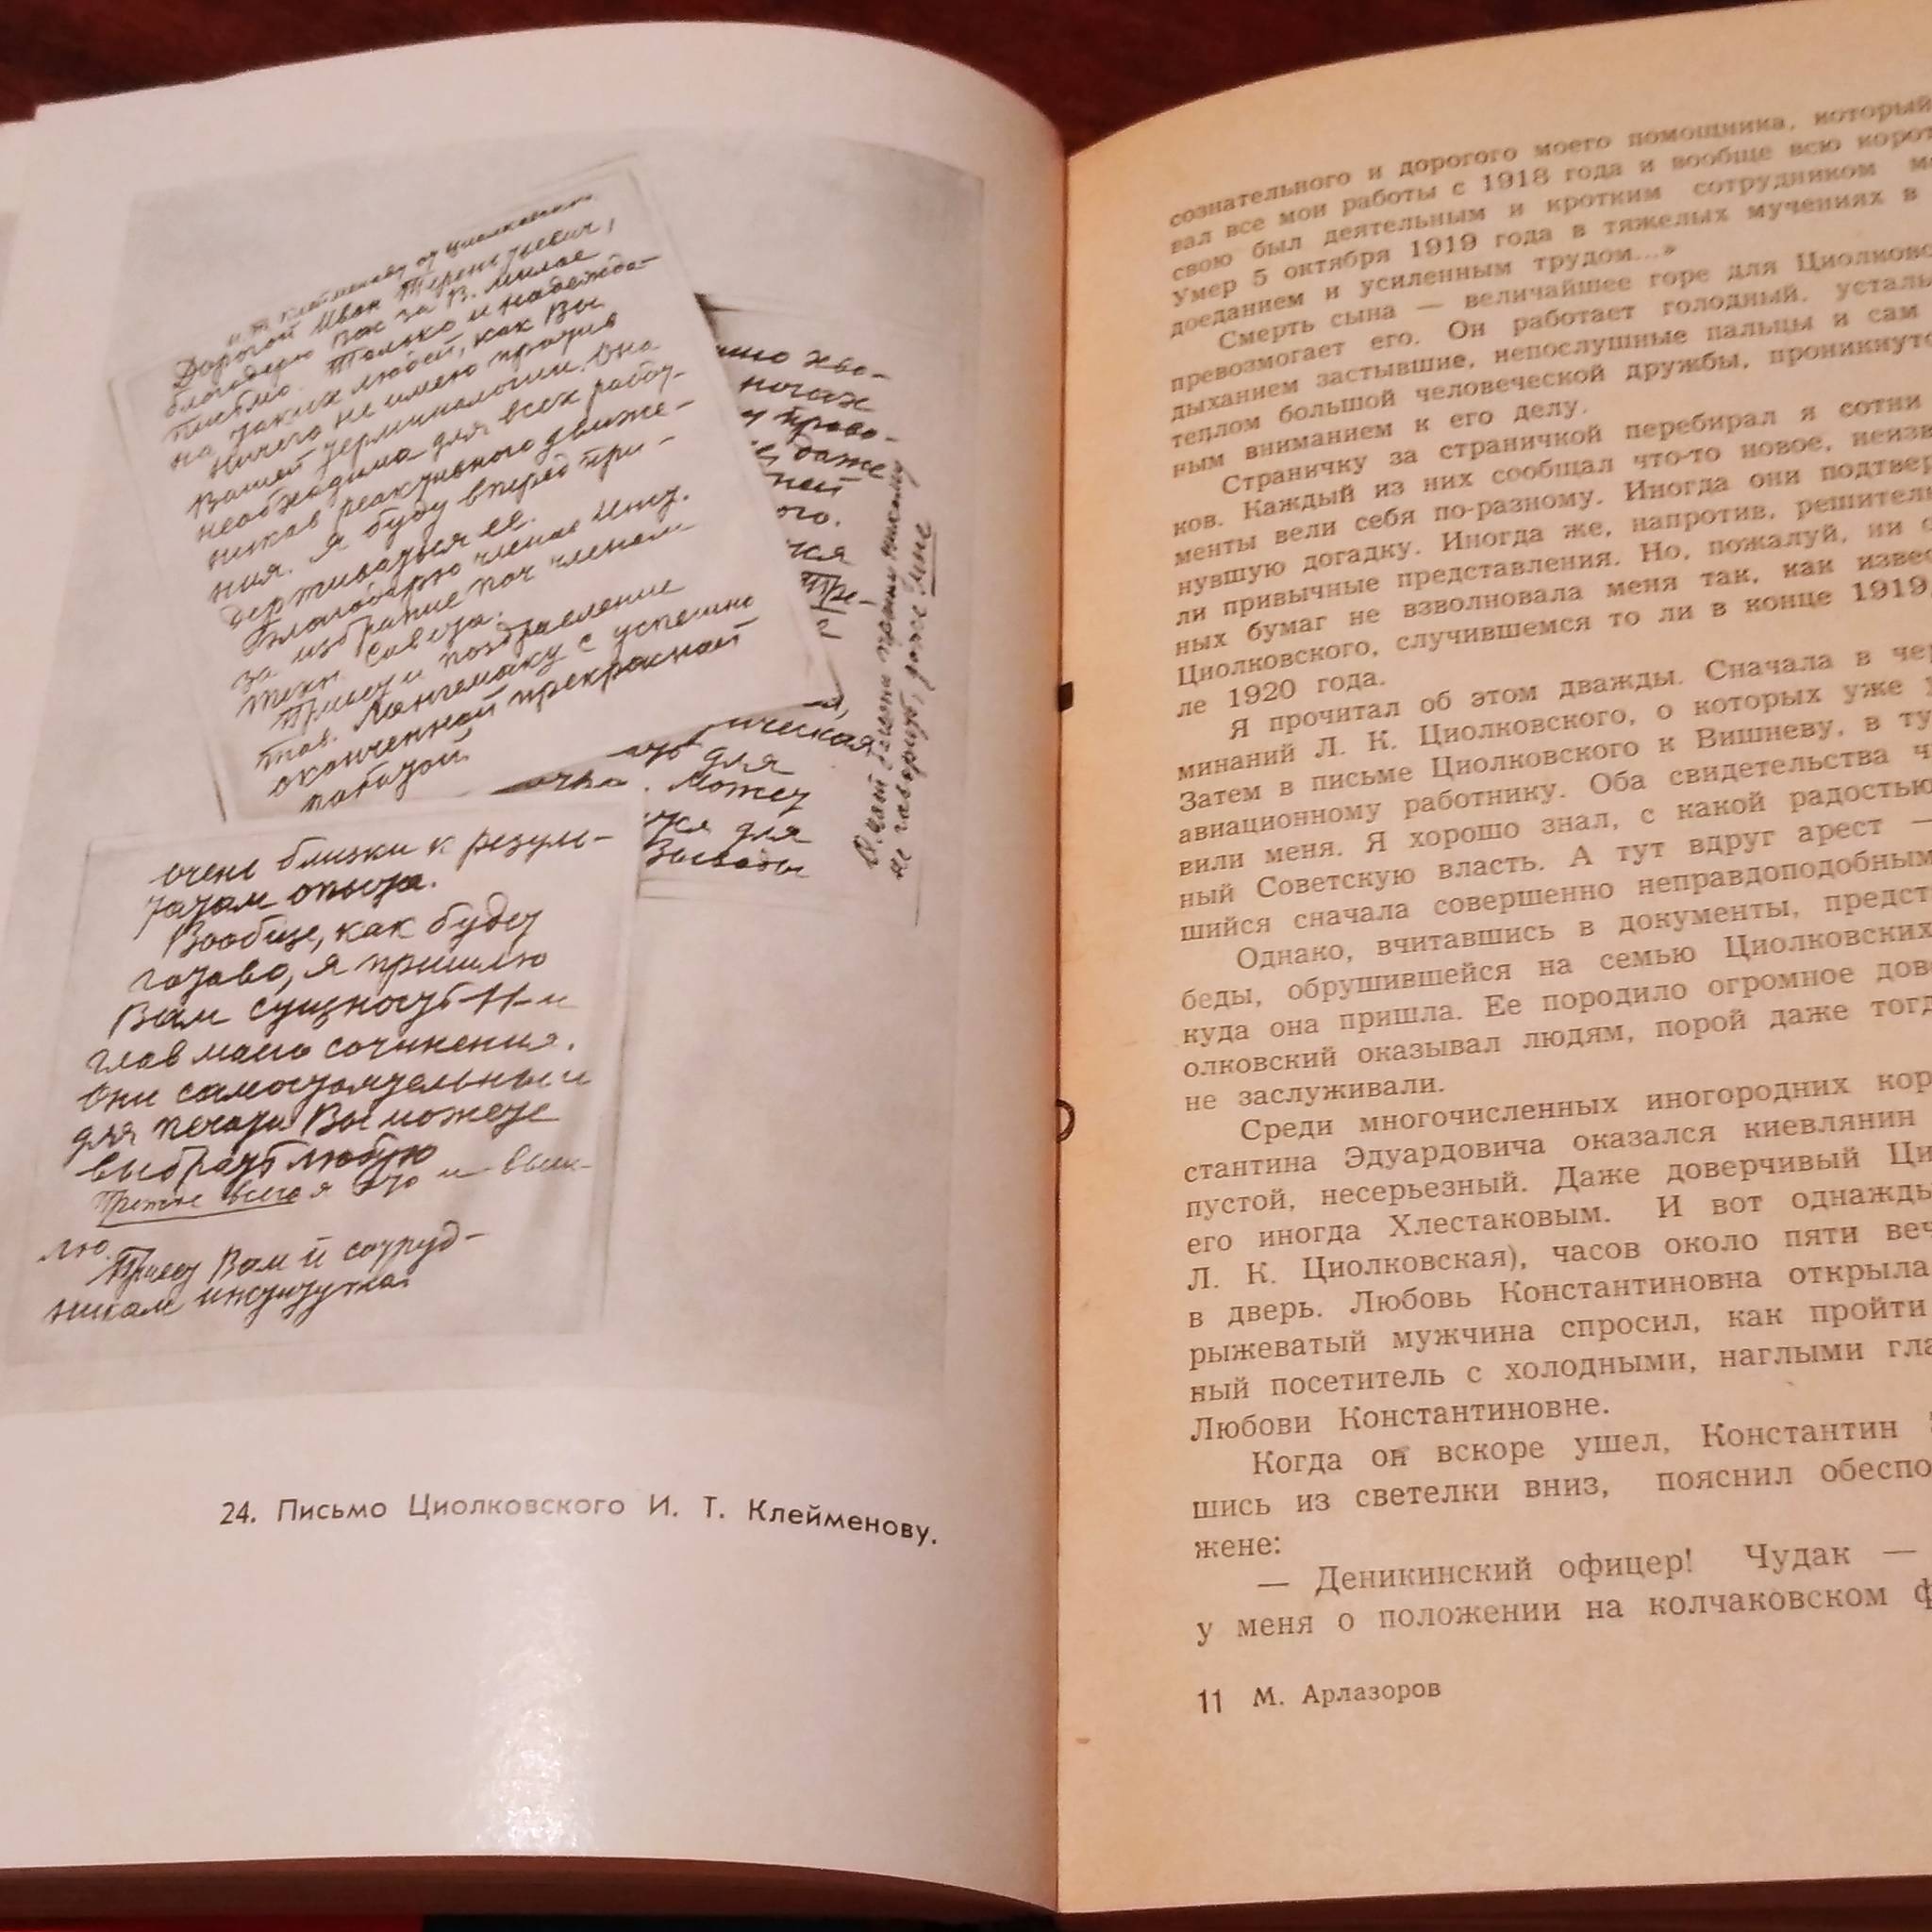 И. Т. Клейменову от Циолковского
Дорогой Иван Терентьевич,
благодарю Вас за В. милое
письмо. Только и надежда-
на таких людей, как Вы
Ничего не имею против
Вашей терминологии. Она
необходима для всех работ-
ников реактивного движе-
ния. Я буду вперед при-
держиваться ее.
Благодарю членов Инт.
за избрание поч членом
техн. Совета.
Привет и поздравление
тов. Лангемаку с успешно
оконченной прекрасной
работой.
хво-
ногах
прово-
даже
ного.
Пре-
ическая
для
Можеу
для
очень близки к резуль-
татам опыта.
Вообще, как будет
готово, я пришлю
Вам сущность 11-и
глав моего сочинения.
Они самостоятельны и
для печати Вы можете
выбрать любую
Прежде всего я это и выш-
лю.
Привет Вам и сотруд-
никам института.
не говорит, даже мне
24. Письмо Циолковского И. Т. Клейменову.
сознательного и дорогого моего помощника, который
вал все мои работы с 1918 года и вообще всю корот
свою был деятельным и кротким сотрудником
Умер 5 октября 1919 года в тяжелых мучениях в
доеданием и усиленным трудом...»
Смерть сына — величайшее горе для Циолковс
превозмогает его. Он работает голодный, усталы
дыханием застывшие, непослушные пальцы и сам
теплом большой человеческой дружбы, проникнуто
ным вниманием к его делу.
Страничку за страничкой перебирал я сотни
ков. Каждый из них сообщал что-то новое, неизв
менты вели себя по-разному. Иногда они подтвер
нувшую догадку. Иногда же, напротив, решитель
ли привычные представления. Но, пожалуй, ни
ных бумаг не взволновала меня так, как извес
Циолковского, случившемся то ли в конце 1919,
ле 1920 года.
Я прочитал об этом дважды. Сначала в чер
минаний Л. К. Циолковского, о которых уже
Затем в письме Циолковского к Вишневу, в ту
авиационному работнику. Оба свидетельства
вили меня. Я хорошо знал, с какой радостью
ный Советскую власть. А тут вдруг арест —
шийся сначала совершенно неправдоподобным
Однако, вчитавшись в документы, предст
беды, обрушившейся на семью Циолковских
куда она пришла. Ее породило огромное дов
олковский оказывал людям, порой даже тогд
не заслуживали.
Среди многочисленных иногородних кор
стантина Эдуардовича оказался киевлянин
пустой, несерьезный. Даже доверчивый Ци
его иногда Хлестаковым. И вот однажды
Л. К. Циолковская), часов около пяти веч
в дверь. Любовь Константиновна открыла
рыжеватый мужчина спросил, как пройти
ный посетитель с холодными, наглыми гла
Любови Константиновне.
Когда он вскоре ушел, Константин
шись из светелки вниз, пояснил обеспо
жене:
— Деникинский офицер! Чудак —
у меня о положении на колчаковском ф
11 М. Арлазоров